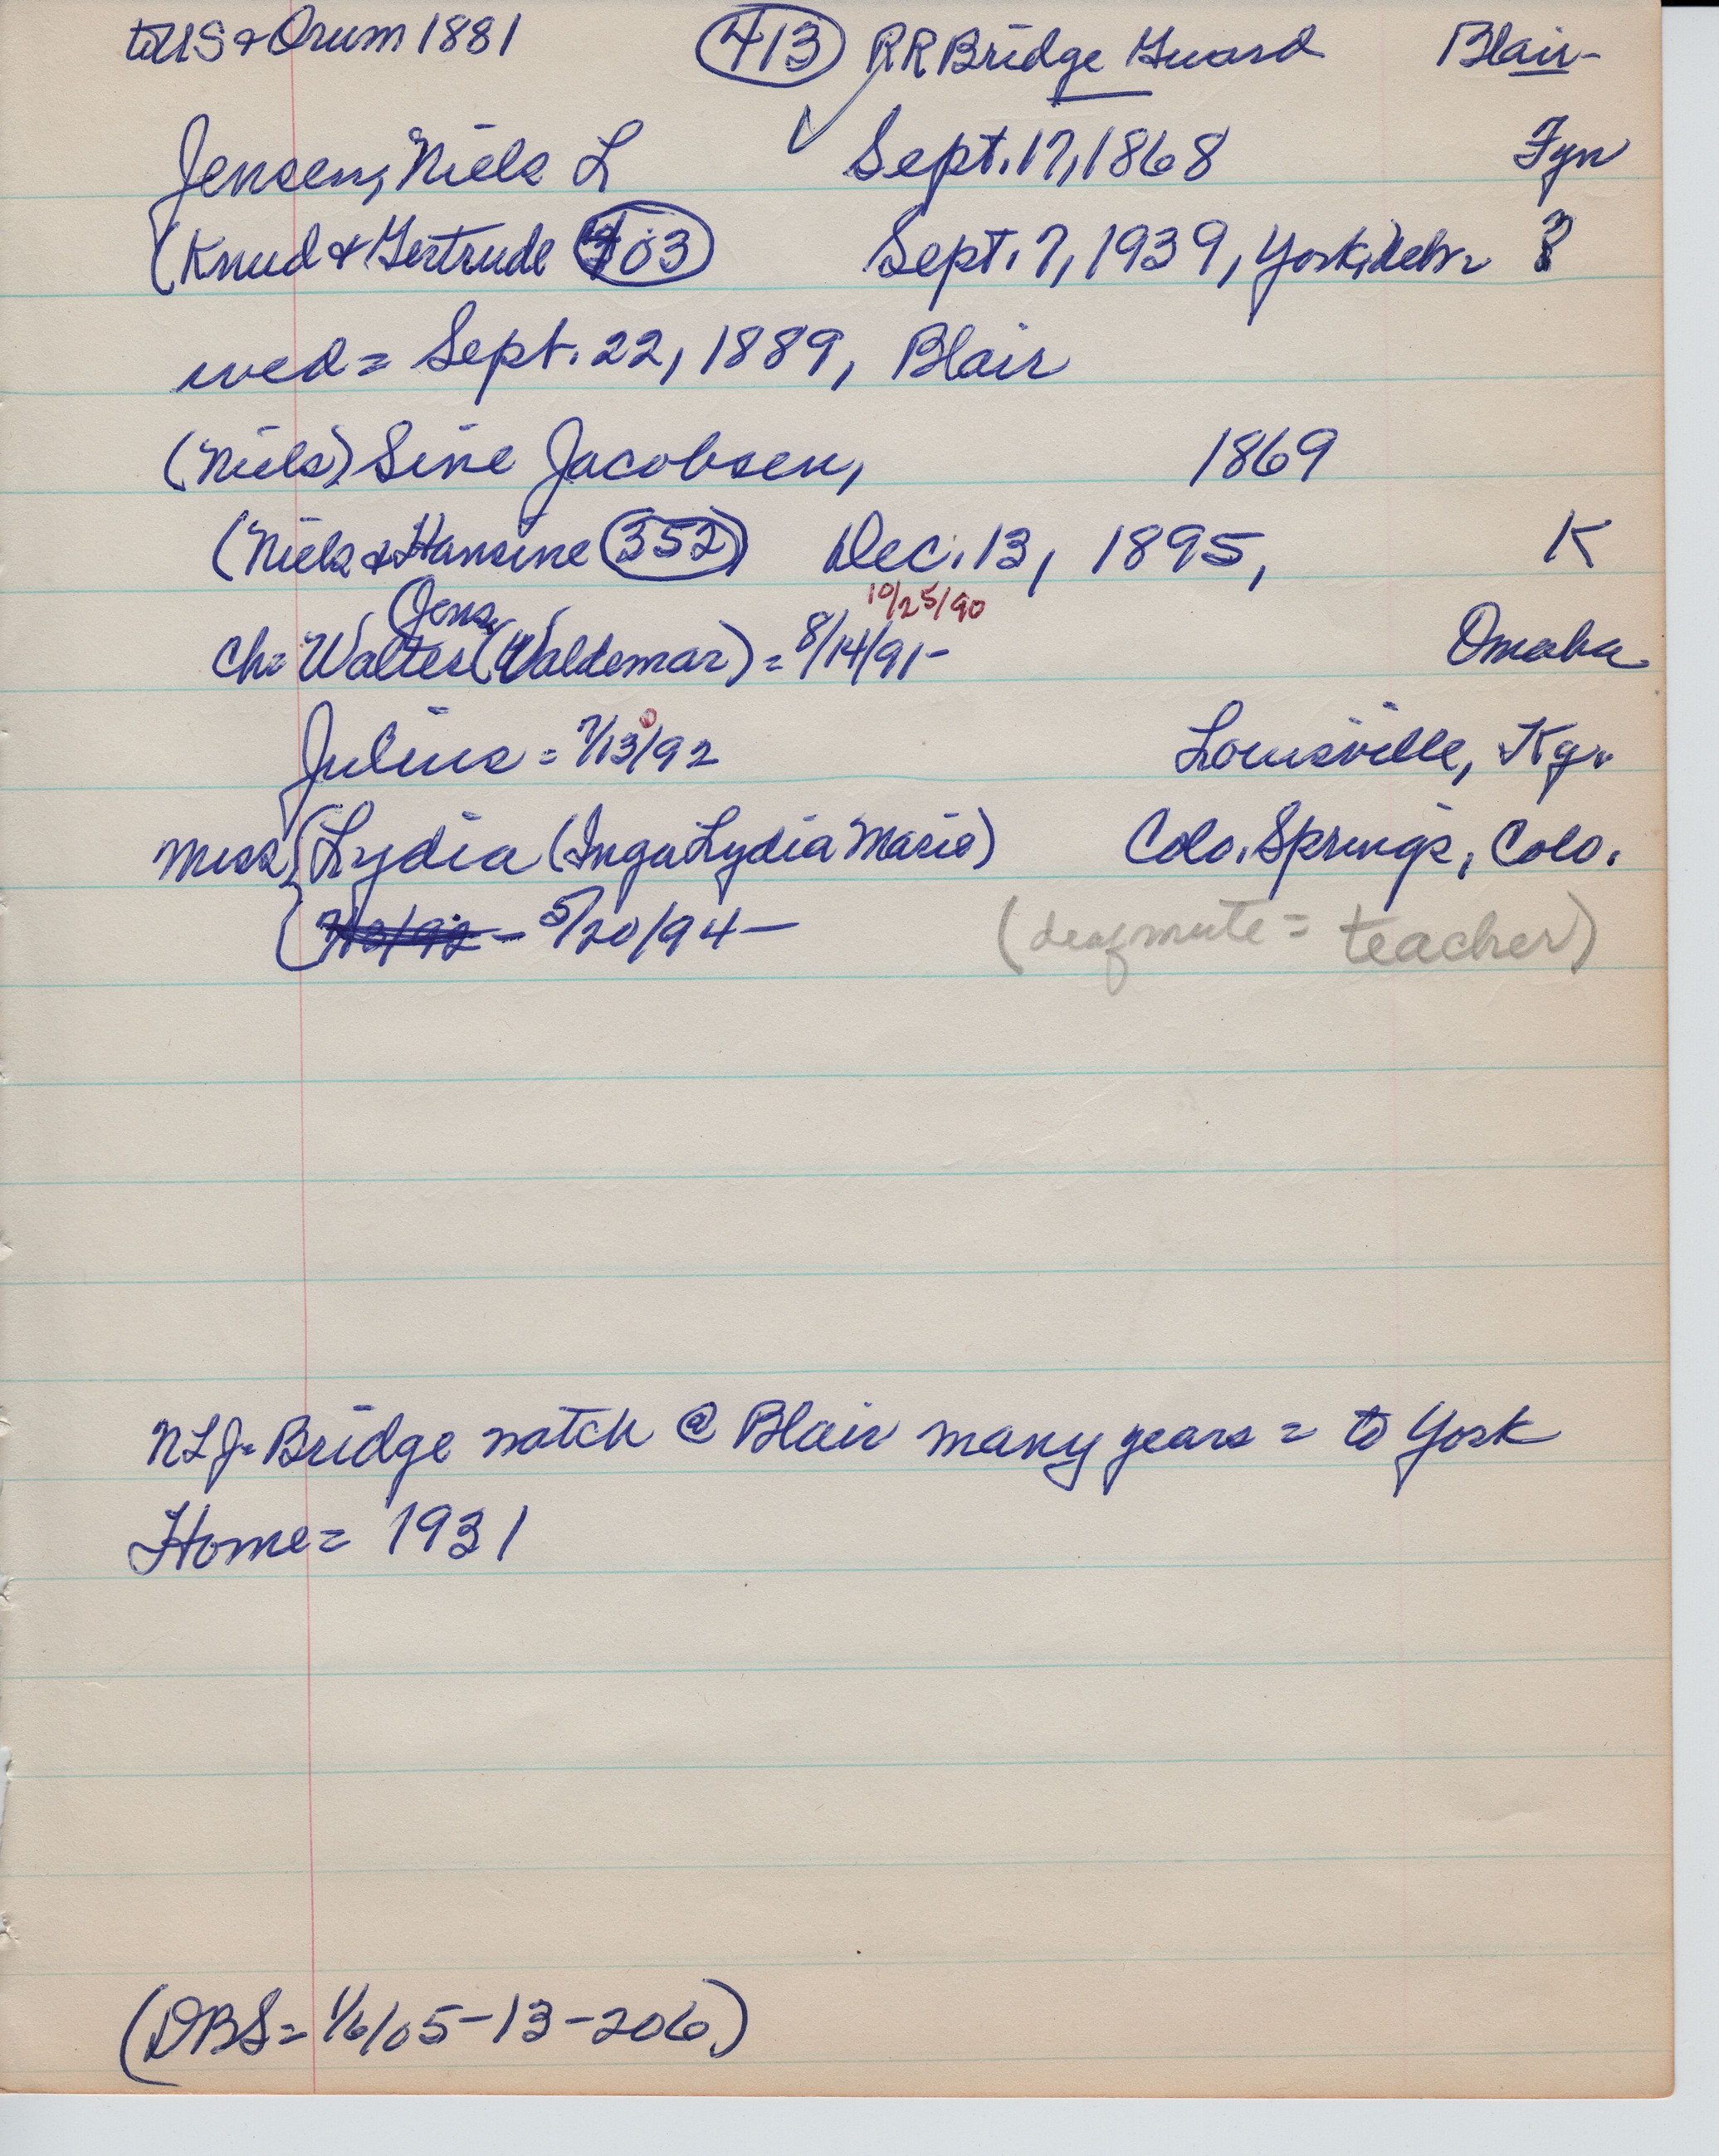 to US & Orum 1881 413 RR Bridge Guard Blair-
Jensen, Niels L ✓ Sept. 17, 1868 Fyn
(Knud & Gertrude 403) Sept. 7, 1939, York, Nebr. ?
wed = Sept. 22, 1889, Blair
(Niels) Sine Jacobsen, 1869
(Niels & Hansine 352) Dec. 13, 1895, K
Jens 10/25/90
Ch= Walter (Waldemar) = 8/14/91- Omaha
Julius = 7/13/92 0 Louisville, Ky.
Miss Lydia (Inga Lydia Marie) Colo. Springs, Colo.
- 5/20/94 - (deaf mute = teacher)
NLJ = Bridge watch @ Blair many years = to York
Home = 1931
(DBS = 1/6/05-13-206)